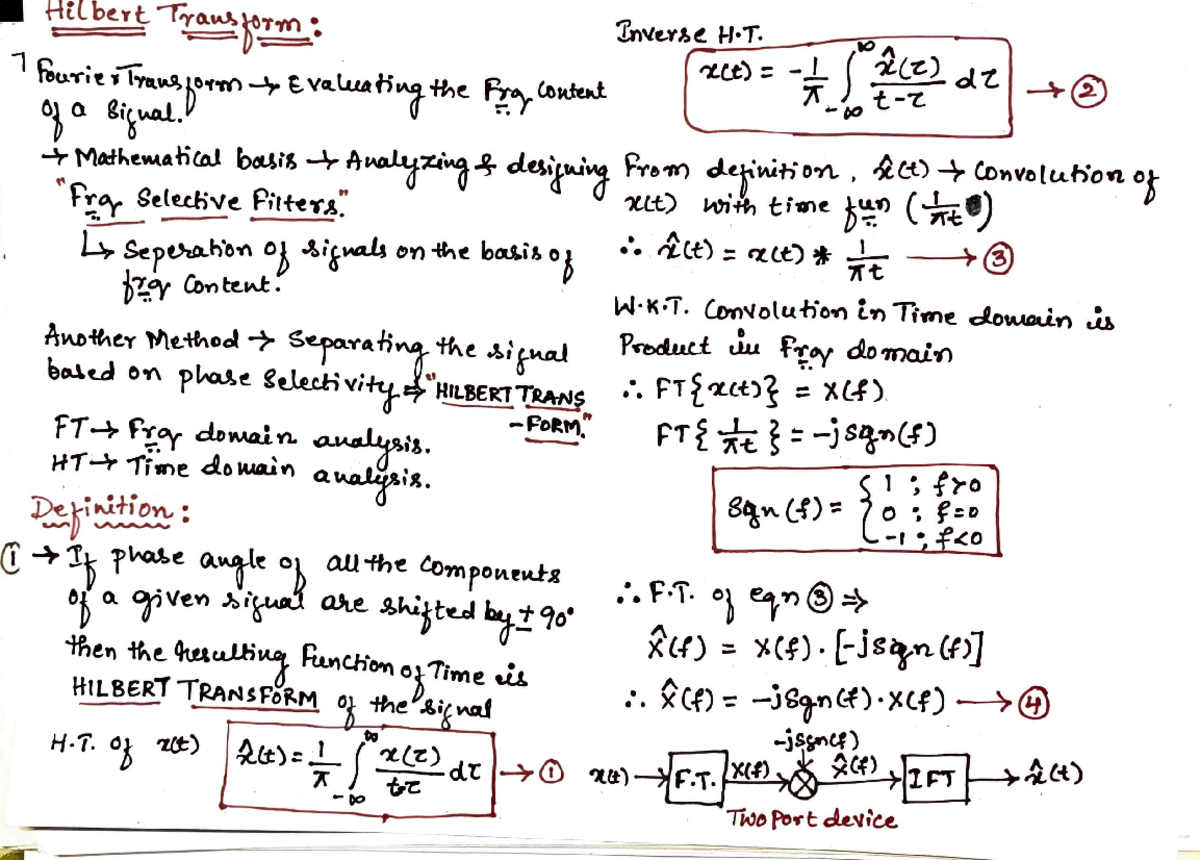 Hilbert Transform :
Fourier Transform → Evaluating the Frq. Content
of a Signal.
→ Mathematical basis → Analyzing & designing
"Frq. Selective Filters."
↳ Seperation of signals on the basis of
frq. Content.
Another Method → Separating the signal
based on phase Selectivity ⇒ "HILBERT TRANS
-FORM."
FT → Frq. domain analysis.
HT → Time domain analysis.
Definition :
① → If phase angle of all the Components
of a given signal are shifted by ± 90°
then the resulting Function of Time is
HILBERT TRANSFORM of the signal
H.T. of x(t) x̂(t) = 1/π ∫_{-∞}^{∞} x(τ)/(t-τ) dτ → ①
Inverse H.T.
x(t) = -1/π ∫_{-∞}^{∞} x̂(τ)/(t-τ) dτ → ②
From definition, x̂(t) → Convolution of
x(t) with time fun (1/πt)
∴ x̂(t) = x(t) * 1/πt → ③
W.K.T. Convolution in Time domain is
Product in frq. domain
∴ FT{x(t)} = X(f)
FT{1/πt} = -j sgn(f)
Sgn(f) = { 1 ; f>0
0 ; f=0
-1 ; f<0
∴ F.T. of eqn ③ ⇒
X̂(f) = X(f) . [-j sgn(f)]
∴ X̂(f) = -j Sgn(f) . X(f) → ④
-j sgn(f)
x(t) → F.T. X(f) → ⊗ X̂(f) → IFT → x̂(t)
Two Port device